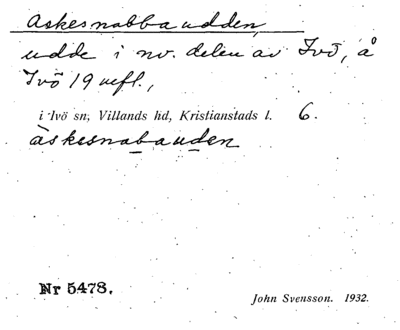 Askesnabbaudden,
udde i nv. delen av Ivö, å
Ivö 19 uefl.,
i Ivö sn, Villands hd, Kristianstads l. 6.
àskesnabauden
Nr 5478.
John Svensson. 1932.